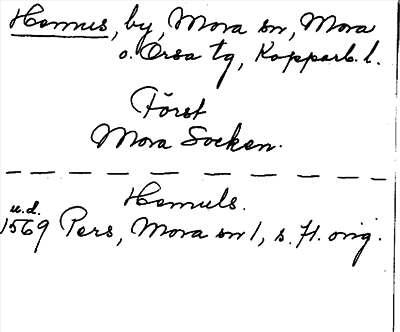 Hemus, by, Mora sn, Mora
o. Orsa tg, Kopparb. l.
Först
Mora Socken.
Hemuls.
u.d.
1569 Pers, Mora sn 1, s. 71. orig.